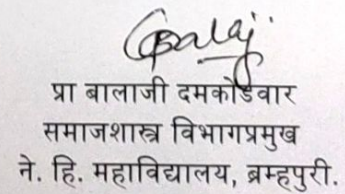 प्रा बालाजी दमकोंडवार
समाजशास्त्र विभागप्रमुख
ने. हि. महाविद्यालय, ब्रम्हपुरी.